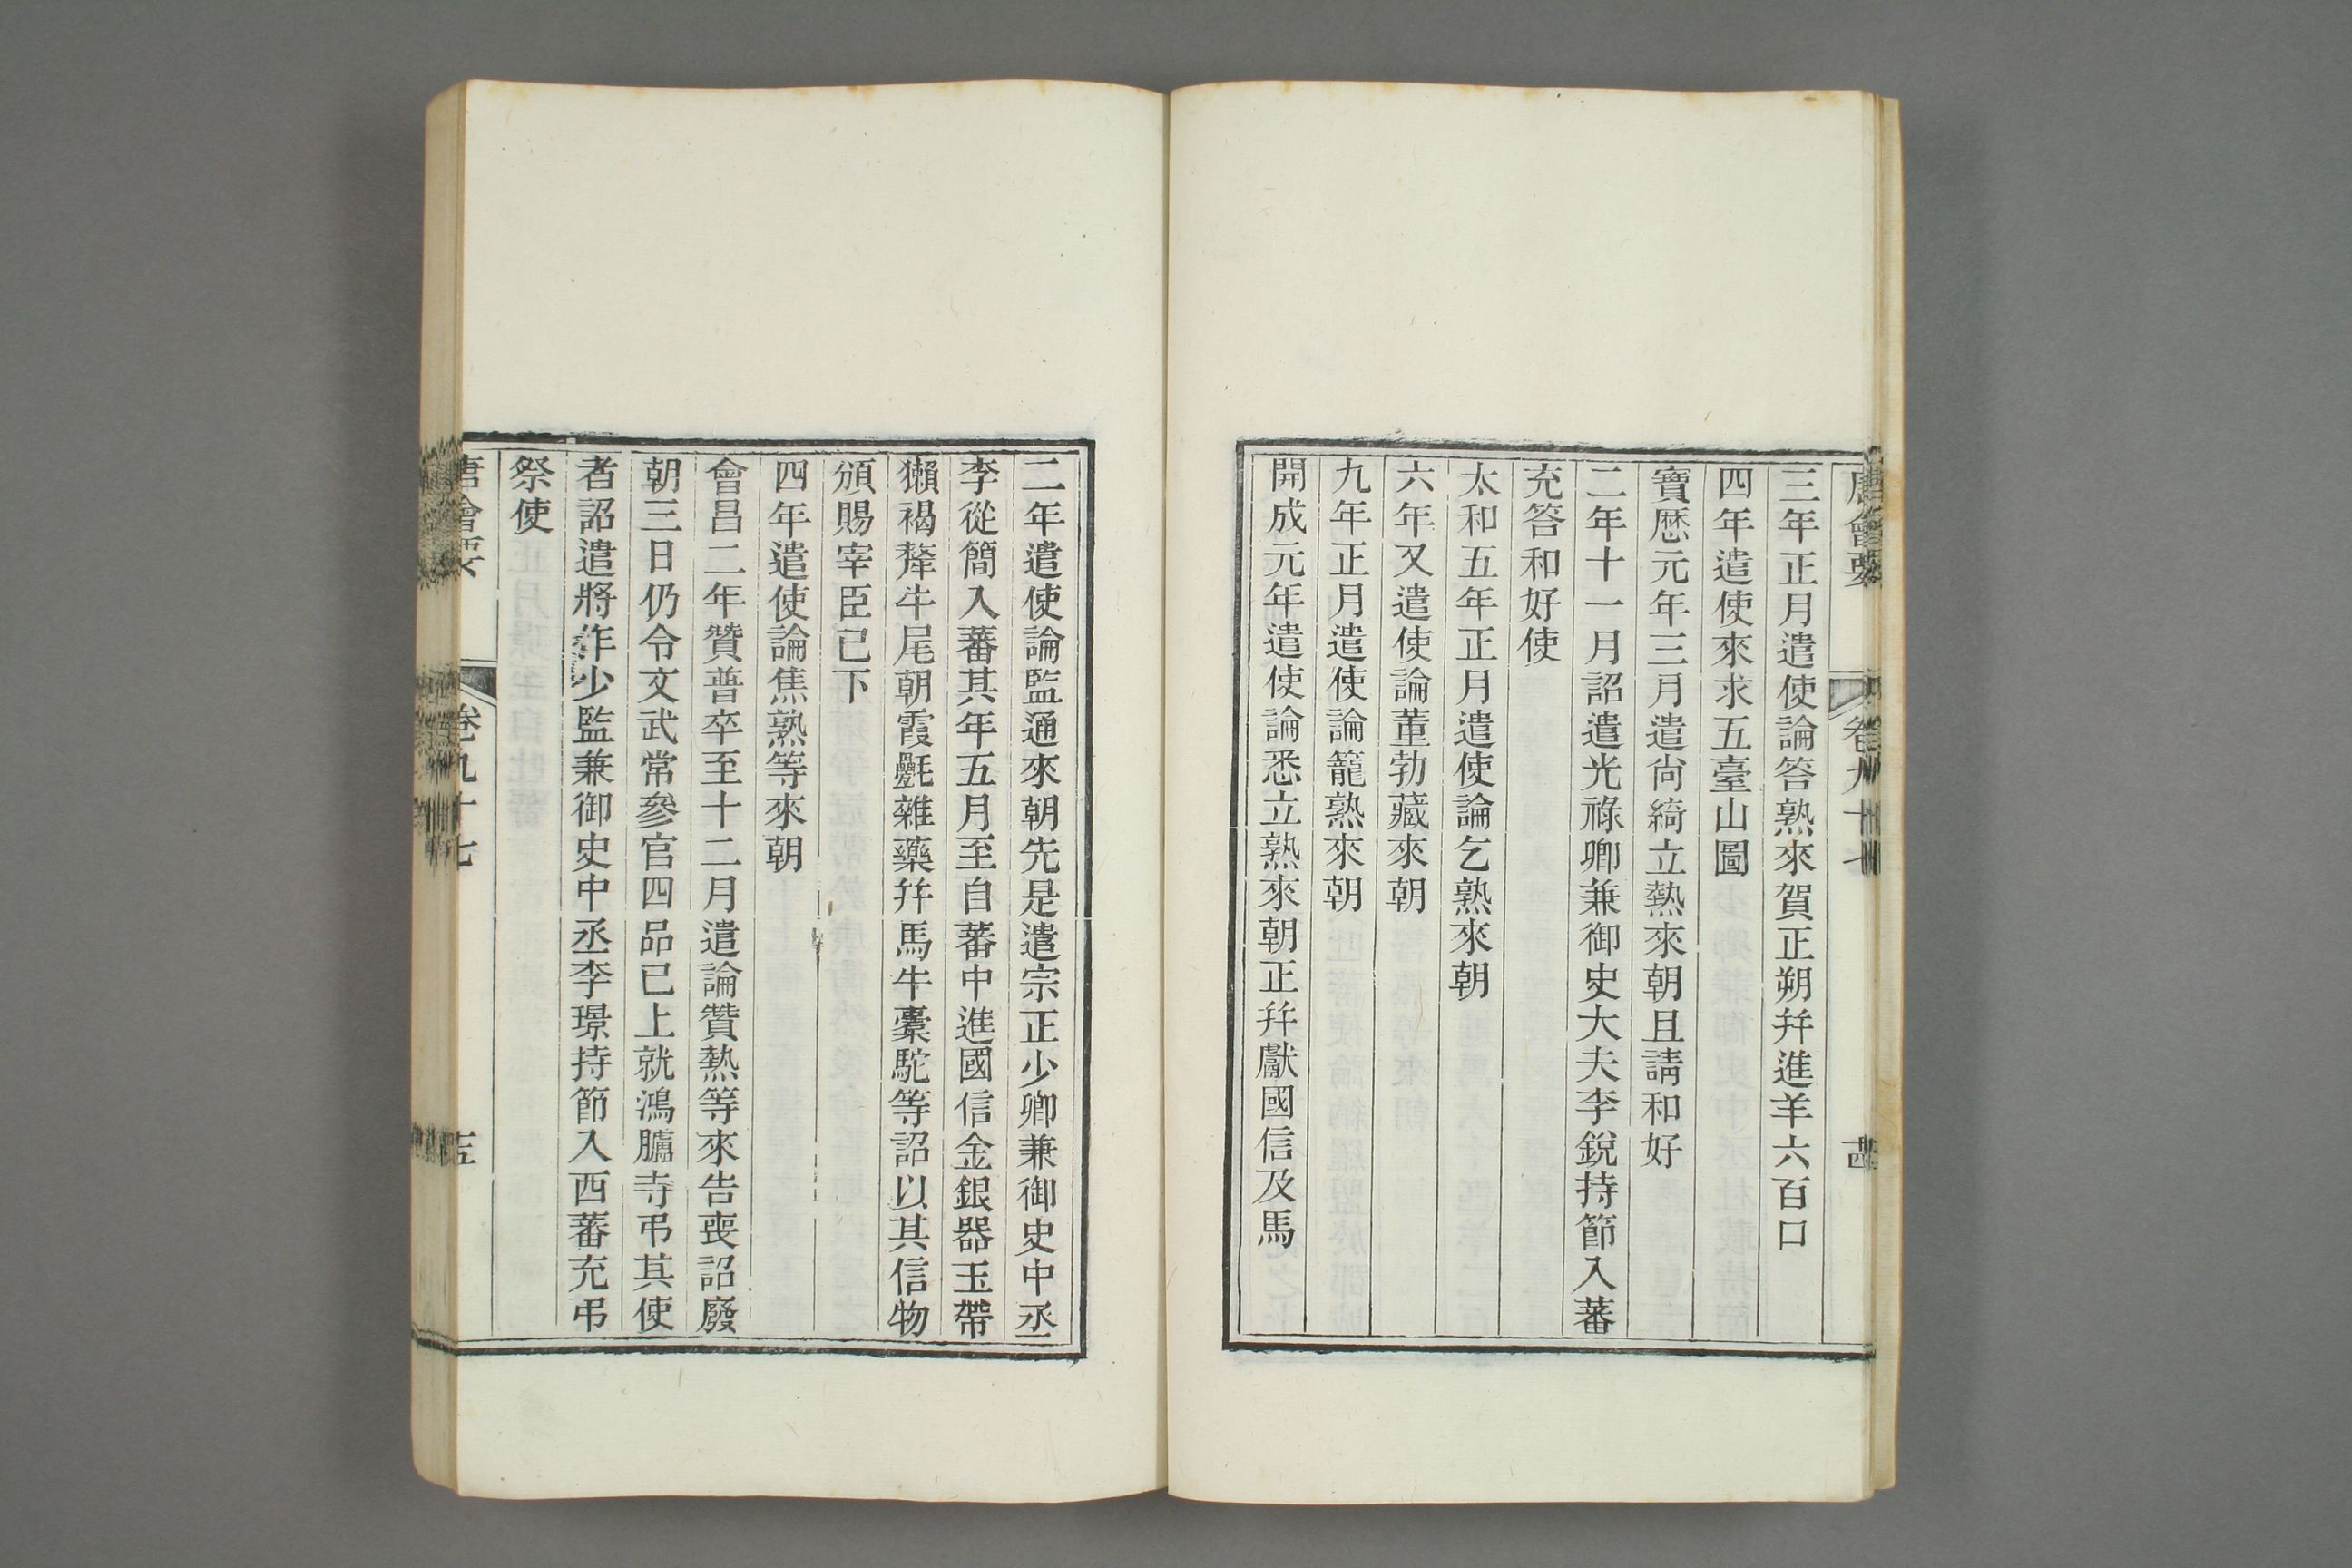 唐會要 卷九十七 十四
三年正月遣使論答熟來賀正朔幷進羊六百口
四年遣使來求五臺山圖
寶歷元年三月遣尙綺立熱來朝且請和好
二年十一月詔遣光祿卿兼御史大夫李銳持節入蕃
充答和好使
太和五年正月遣使論乞熟來朝
六年又遣使論董勃藏來朝
九年正月遣使論籠熟來朝
開成元年遣使論悉立熟來朝正幷獻國信及馬
二年遣使論監通來朝先是遣宗正少卿兼御史中丞
李從簡入蕃其年五月至自蕃中進國信金銀器玉帶
獺褐犛牛尾朝霞氎雜藥幷馬牛橐駝等詔以其信物
頒賜宰臣已下
四年遣使論焦熟等來朝
會昌二年贊普卒至十二月遣論贊熱等來告喪詔廢
朝三日仍令文武常參官四品已上就鴻臚寺弔其使
者詔遣將作少監兼御史中丞李璟持節入西蕃充弔
祭使
唐會要 卷九十七 十五